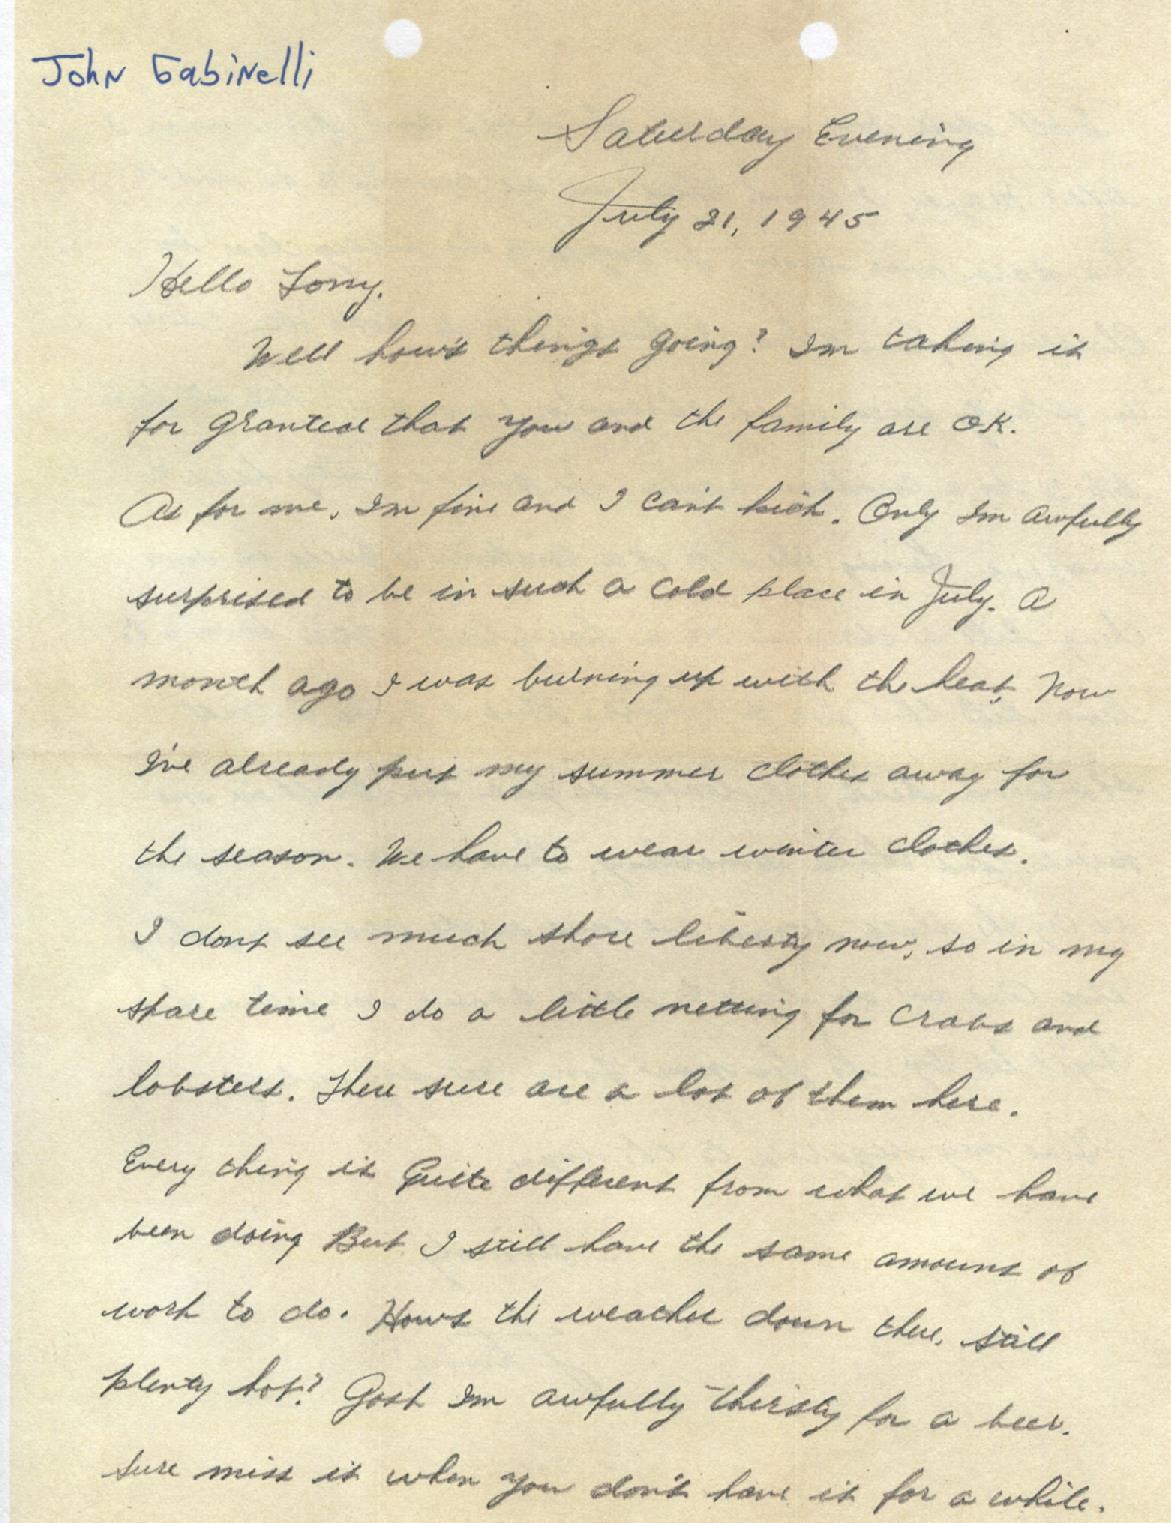 John Gabinelli
Saturday Evening
July 21, 1945
Hello Tony.
Well how's things going? Im taking it
for granted that you and the family are OK.
As for me, Im fine and I can't kick. Only Im awfully
surprised to be in such a cold place in July. A
month ago I was burning up with the heat, now
I've already put my summer clothes away for
the season. We have to wear winter clothes.
I dont see much shore liberty now, so in my
spare time I do a little netting for crabs and
lobsters. There sure are a lot of them here.
Every thing is Quite different from what we have
been doing But I still have the same amount of
work to do. Hows the weather down there, still
plenty hot? Gosh Im awfully thirsty for a beer.
Sure miss it when you don't have it for a while.